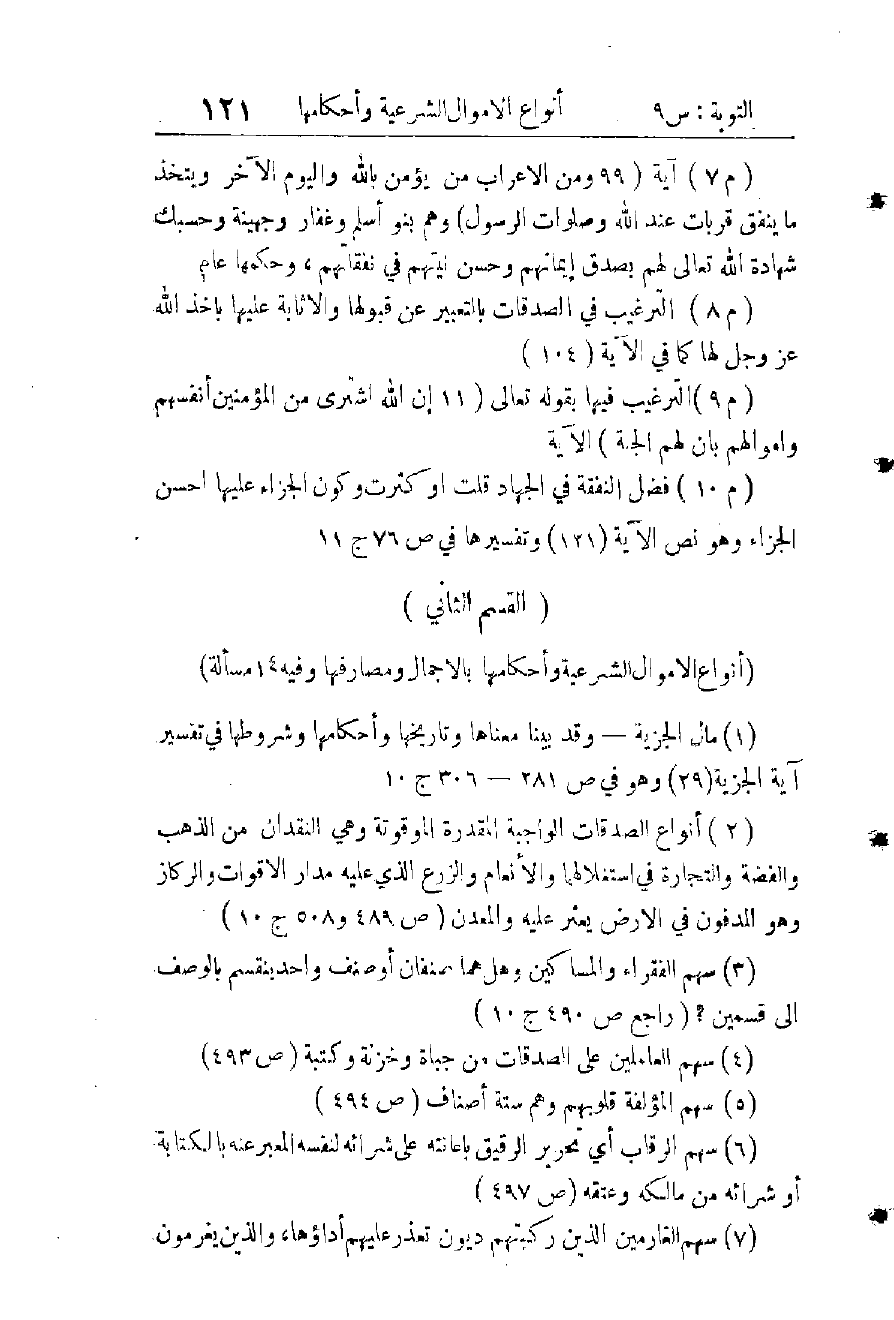 التوبة : س٩ أنواع الاموال الشرعية وأحكامها ١٢١
( م ٧ ) آية ( ٩٩ ومن الاعراب من يؤمن بالله واليوم الآخر ويتخذ
ما ينفق قربات عند الله وصلوات الرسول) وهم بنو أسلم وغفار وجهينة وحسبك
شهادة الله تعالى لهم بصدق إيمانهم وحسن نيتهم في نفقاتهم ، وحكمها عام
( م ٨ ) الترغيب في الصدقات بالتعبير عن قبولها والاثابة عليها باخذ الله
عز وجل لها كما في الآية ( ١٠٤ )
( م ٩ )الترغيب فيها بقوله تعالى ( ١١ إن الله اشترى من المؤمنين أنفسهم
واموالهم بان لهم الجنة ) الآية
( م ١٠ ) فضل النفقة في الجهاد قلت او كثرت وكون الجزاء عليها احسن
الجزاء وهو نص الآية (١٢١) وتفسيرها في ص ٧٦ ج ١١
( القسم الثاني )
(أنواع الاموال الشرعية وأحكامها بالاجمال ومصارفها وفيه ١٤ مسألة)
(١) مال الجزية — وقد بينا معناها وتاريخها وأحكامها وشروطها في تفسير
آية الجزية (٢٩) وهو في ص ٢٨١ — ٣٠٦ ج ١٠
( ٢ ) أنواع الصدقات الواجبة المقدرة الموقوتة وهي النقدان من الذهب
والفضة والتجارة في استغلالها والأنعام والزرع الذي عليه مدار الاقوات والركاز
وهو المدفون في الارض يعثر عليه والمعدن ( ص ٤٨٩ و ٥٠٨ ج ١٠ )
(٣) سهم الفقراء والمساكين وهل هما صنفان أو صنف واحد ينقسم بالوصف
الى قسمين ؟ ( راجع ص ٤٩٠ ج ١٠ )
(٤) سهم العاملين على الصدقات من جباة وخزنة وكتبة ( ص ٤٩٣)
(٥) سهم المؤلفة قلوبهم وهم ستة أصناف ( ص ٤٩٤ )
(٦) سهم الرقاب أي تحرير الرقيق باعانته على شرائه لنفسه المعبر عنه بالكتابة
أو شرائه من مالكه وعتقه (ص ٤٩٧ )
(٧) سهم الغارمين الذين ركبتهم ديون تعذر عليهم أداؤها، والذين يغرمون